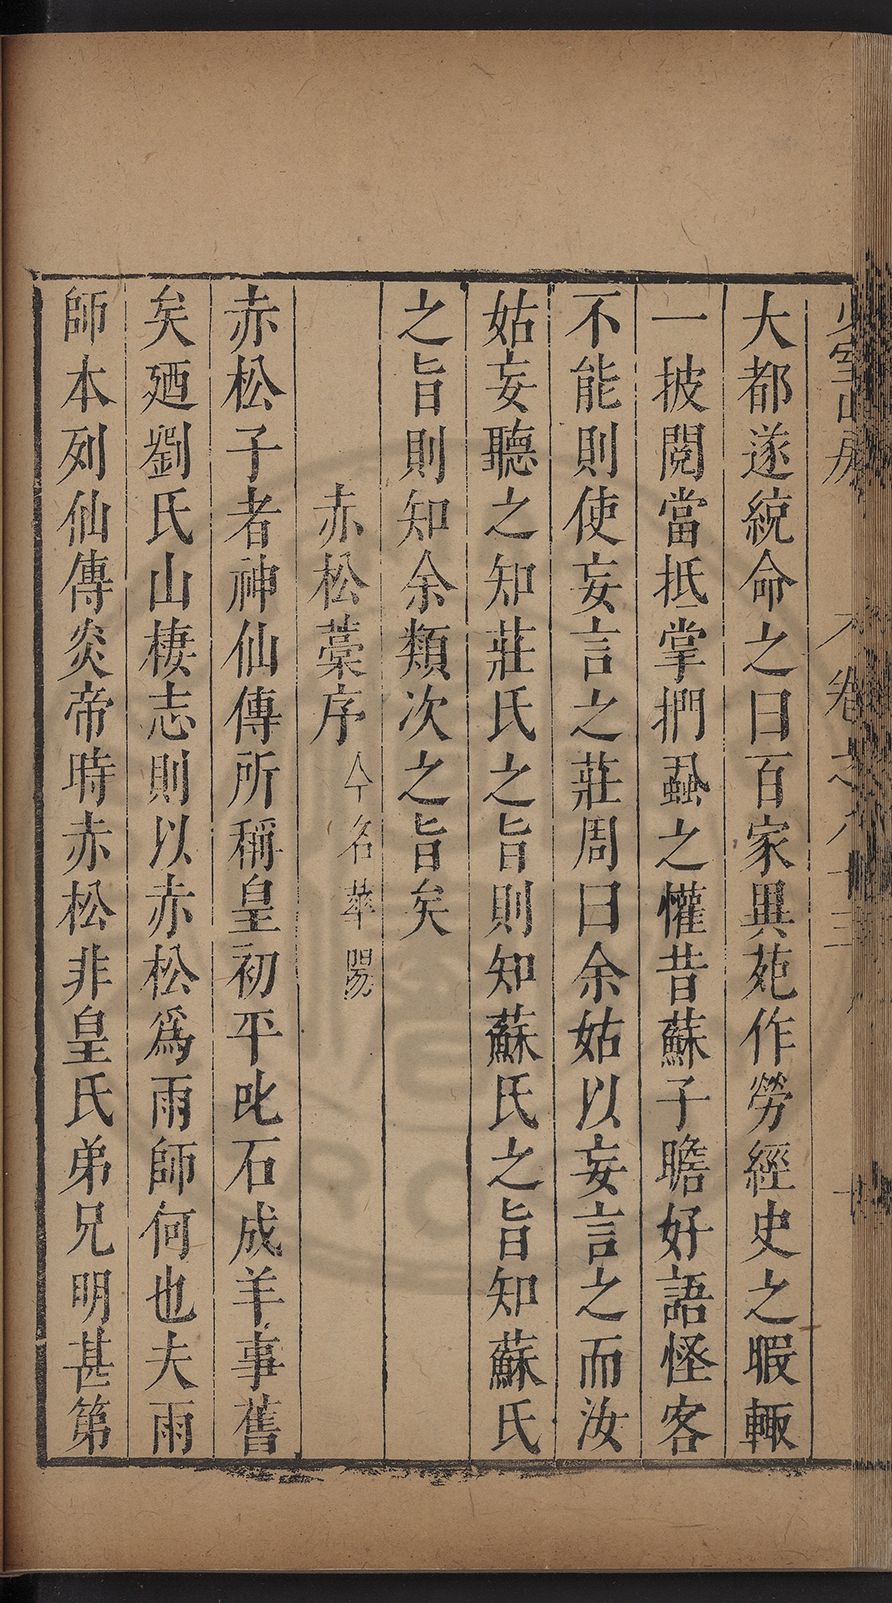 少室山房 卷之八十三 十
大都遂統命之曰百家異苑作勞經史之暇輙
一披閱當抵掌捫蝨之懽昔蘇子瞻好語怪客
不能則使妄言之莊周曰余姑以妄言之而汝
姑妄聽之知莊氏之旨則知蘇氏之旨知蘇氏
之旨則知余類次之旨矣
赤松藁序 今名華陽
赤松子者神仙傳所稱皇初平叱石成羊事舊
矣廼劉氏山棲志則以赤松爲雨師何也夫雨
師本列仙傳炎帝時赤松非皇氏弟兄明甚第